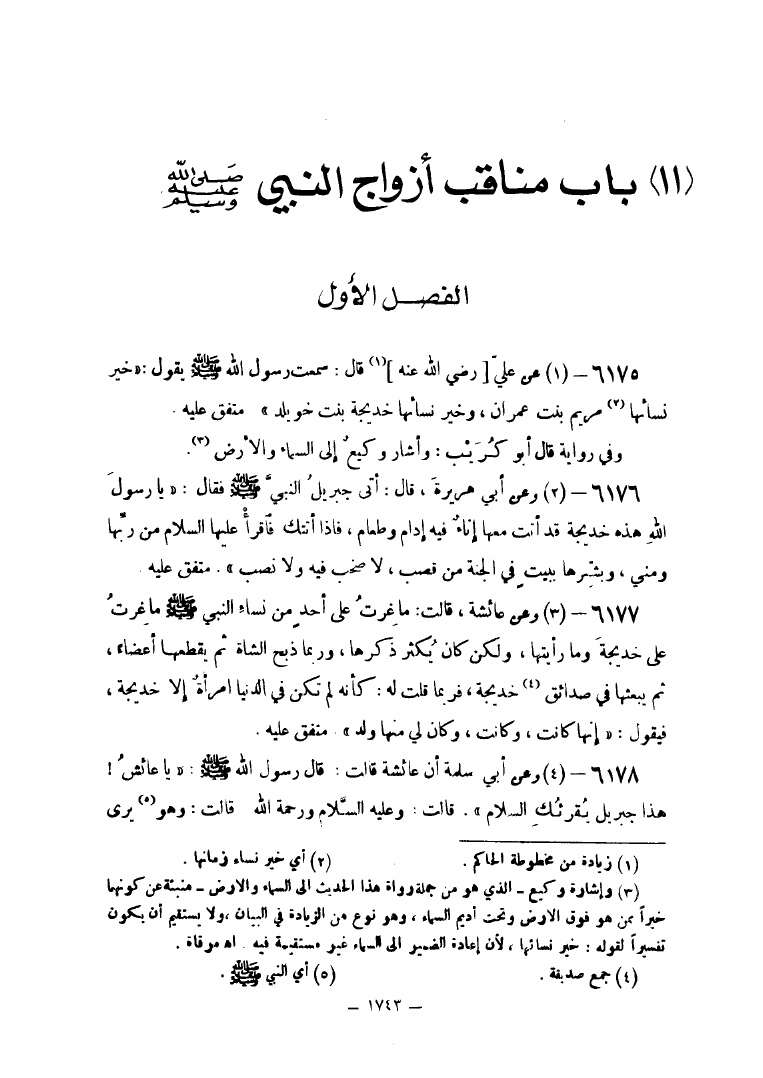 (١١) باب مناقب أزواج النبي ﷺ
الفصل الأول
٦١٧٥ – (١) عن عليّ [ رضي الله عنه ](١) قال : سمعت رسول الله ﷺ يقول : « خير
نسائها (٢) مريم بنت عمران ، وخير نسائها خديجة بنت خويلد » متفق عليه .
وفي رواية قال أبو كُرَيْب : وأشار وكيعٌ إلى السماء والأرض (٣).
٦١٧٦ – (٢) وعن أبي هريرةَ ، قال : أتى جبريلُ النبيَّ ﷺ فقال : « يا رسولَ
اللهِ هذه خديجة قد أتت معها إناءٌ فيه إدام وطعام ، فاذا أتتك فاقرأْ عليها السلام من ربِّها
ومني ، وبشِّرها ببيتٍ في الجنة من قصب ، لا صخب فيه ولا نصب » . متفق عليه
٦١٧٧ – (٣) وعن عائشة ، قالت : ما غرتُ على أحدٍ من نساءِ النبي ﷺ ما غرتُ
على خديجةَ وما رأيتها ، ولكن كان يُكثر ذكرها ، وربما ذبح الشاة ثم يقطعها أعضاء ،
ثم يبعثها في صدائق (٤) خديجة ، فربما قلت له : كأنه لم تكن في الدنيا امرأةٌ إلا خديجة ،
فيقول : « إنها كانت ، وكانت ، وكان لي منها ولد » . متفق عليه .
٦١٧٨ – (٤) وعن أبي سلمة أن عائشة قالت : قال رسول الله ﷺ : « يا عائشُ !
هذا جبريل يُقرئكِ السلام » . قالت : وعليه السَّلام ورحمة الله قالت : وهو(٥) يرى
(١) زيادة من مخطوطة الحاكم . (٢) أي خير نساء زمانها .
(٣) وإشارة وكيع – الذي هو من جملة رواة هذا الحديث الى السماء والارض – منبئة عن كونها
خيراً ممن هو فوق الارض وتحت أديم السماء ، وهو نوع من الزيادة في البيان ، ولا يستقيم أن يكون
تفسيراً لقوله : خير نسائها ، لأن إعادة الضمير الى السماء غير مستقيمة فيه . اه مرقاة .
(٤) جمع صديقة . (٥) أي النبي ﷺ .
– ١٧٤٣ –